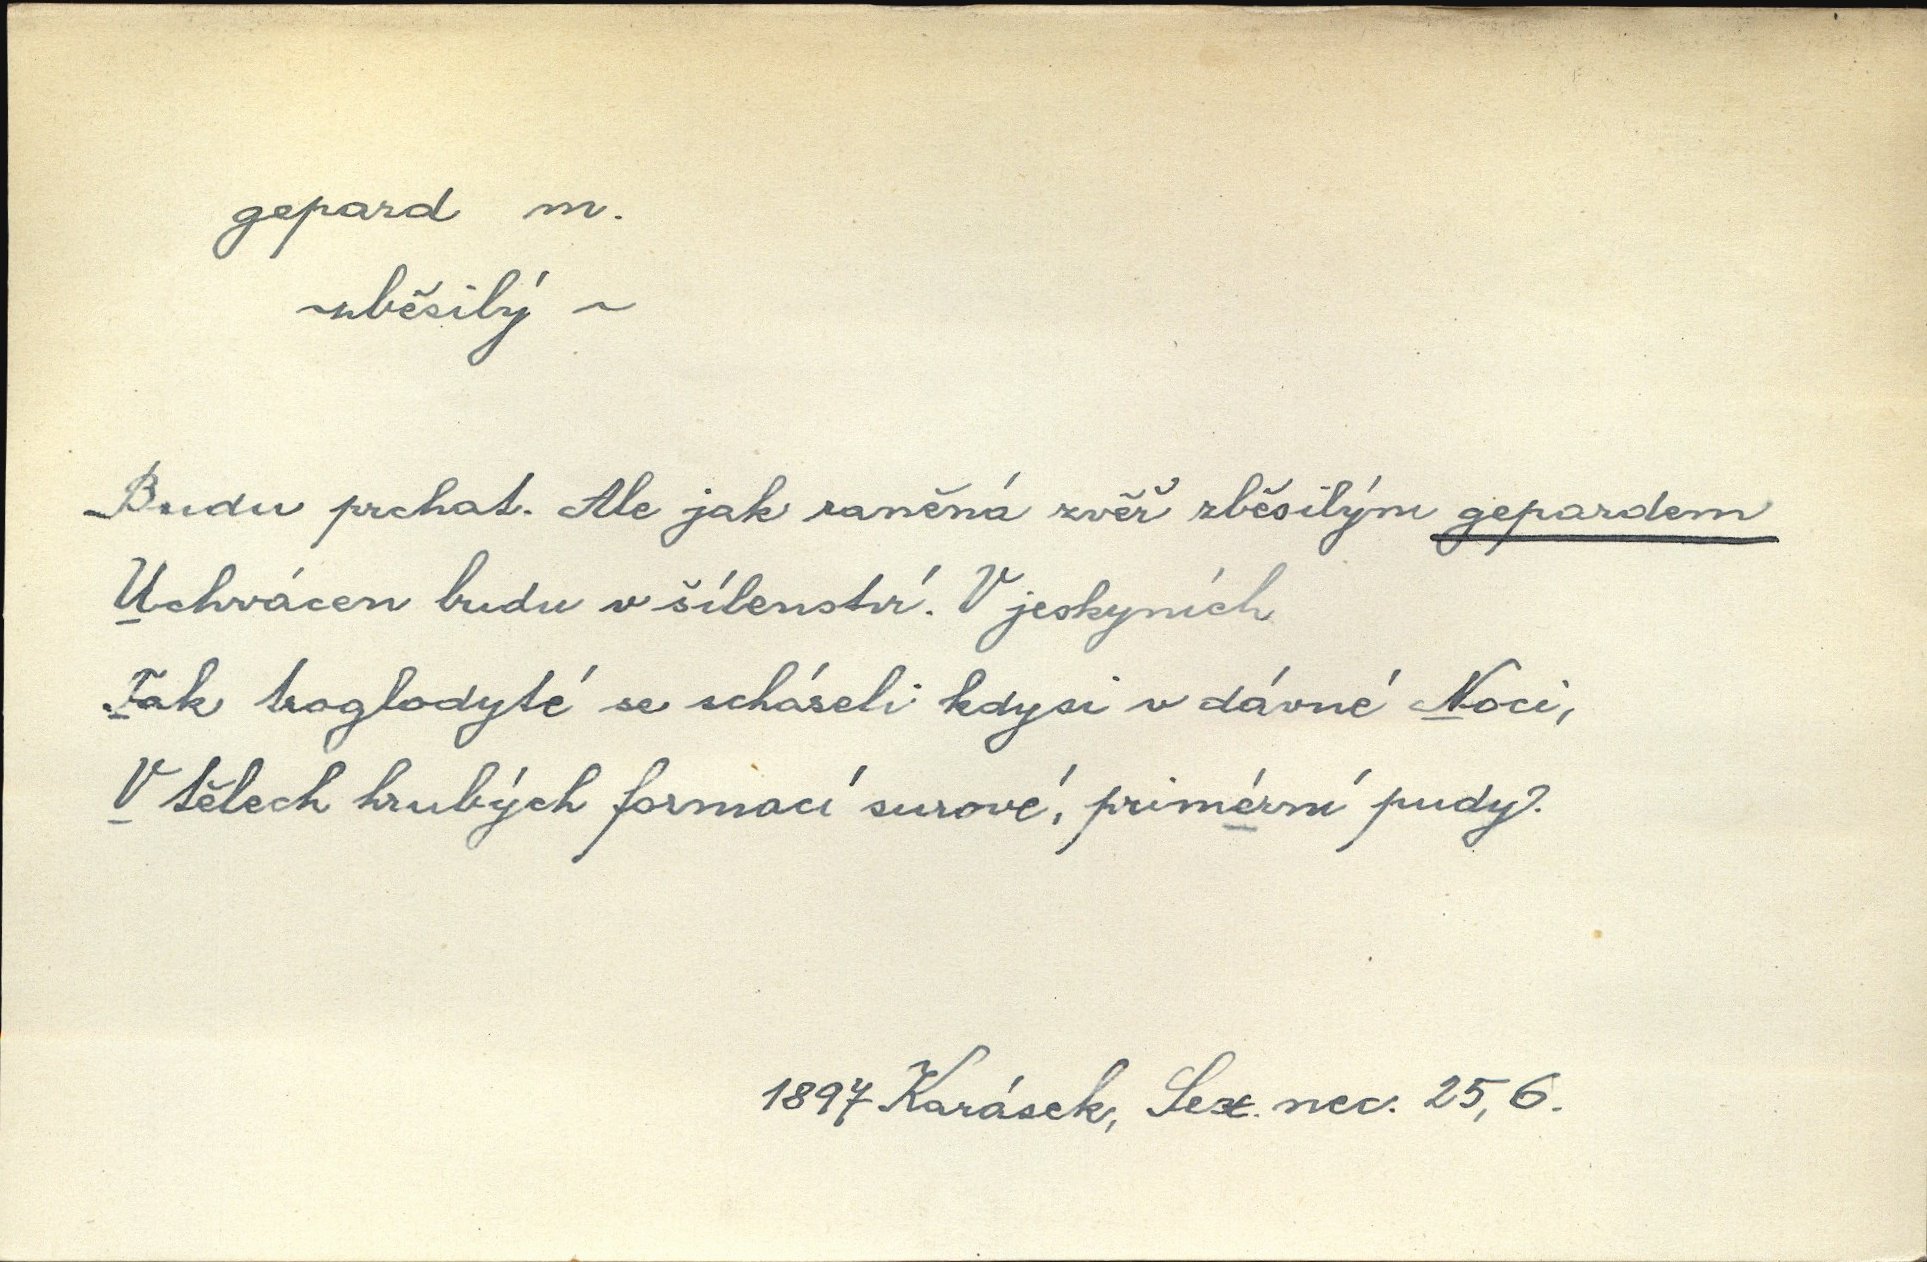 gepard m.
zběsilý ~
Budu prchat. Ale jak raněná zvěř zběsilým gepardem
Uchvácen budu v šílenství. V jeskyních
Tak troglodyté se scházeli kdysi v dávné Noci,
V tělech hrubých formací surové, primérní pudy?
1897 Karásek, Sex. nec. 25, 6.